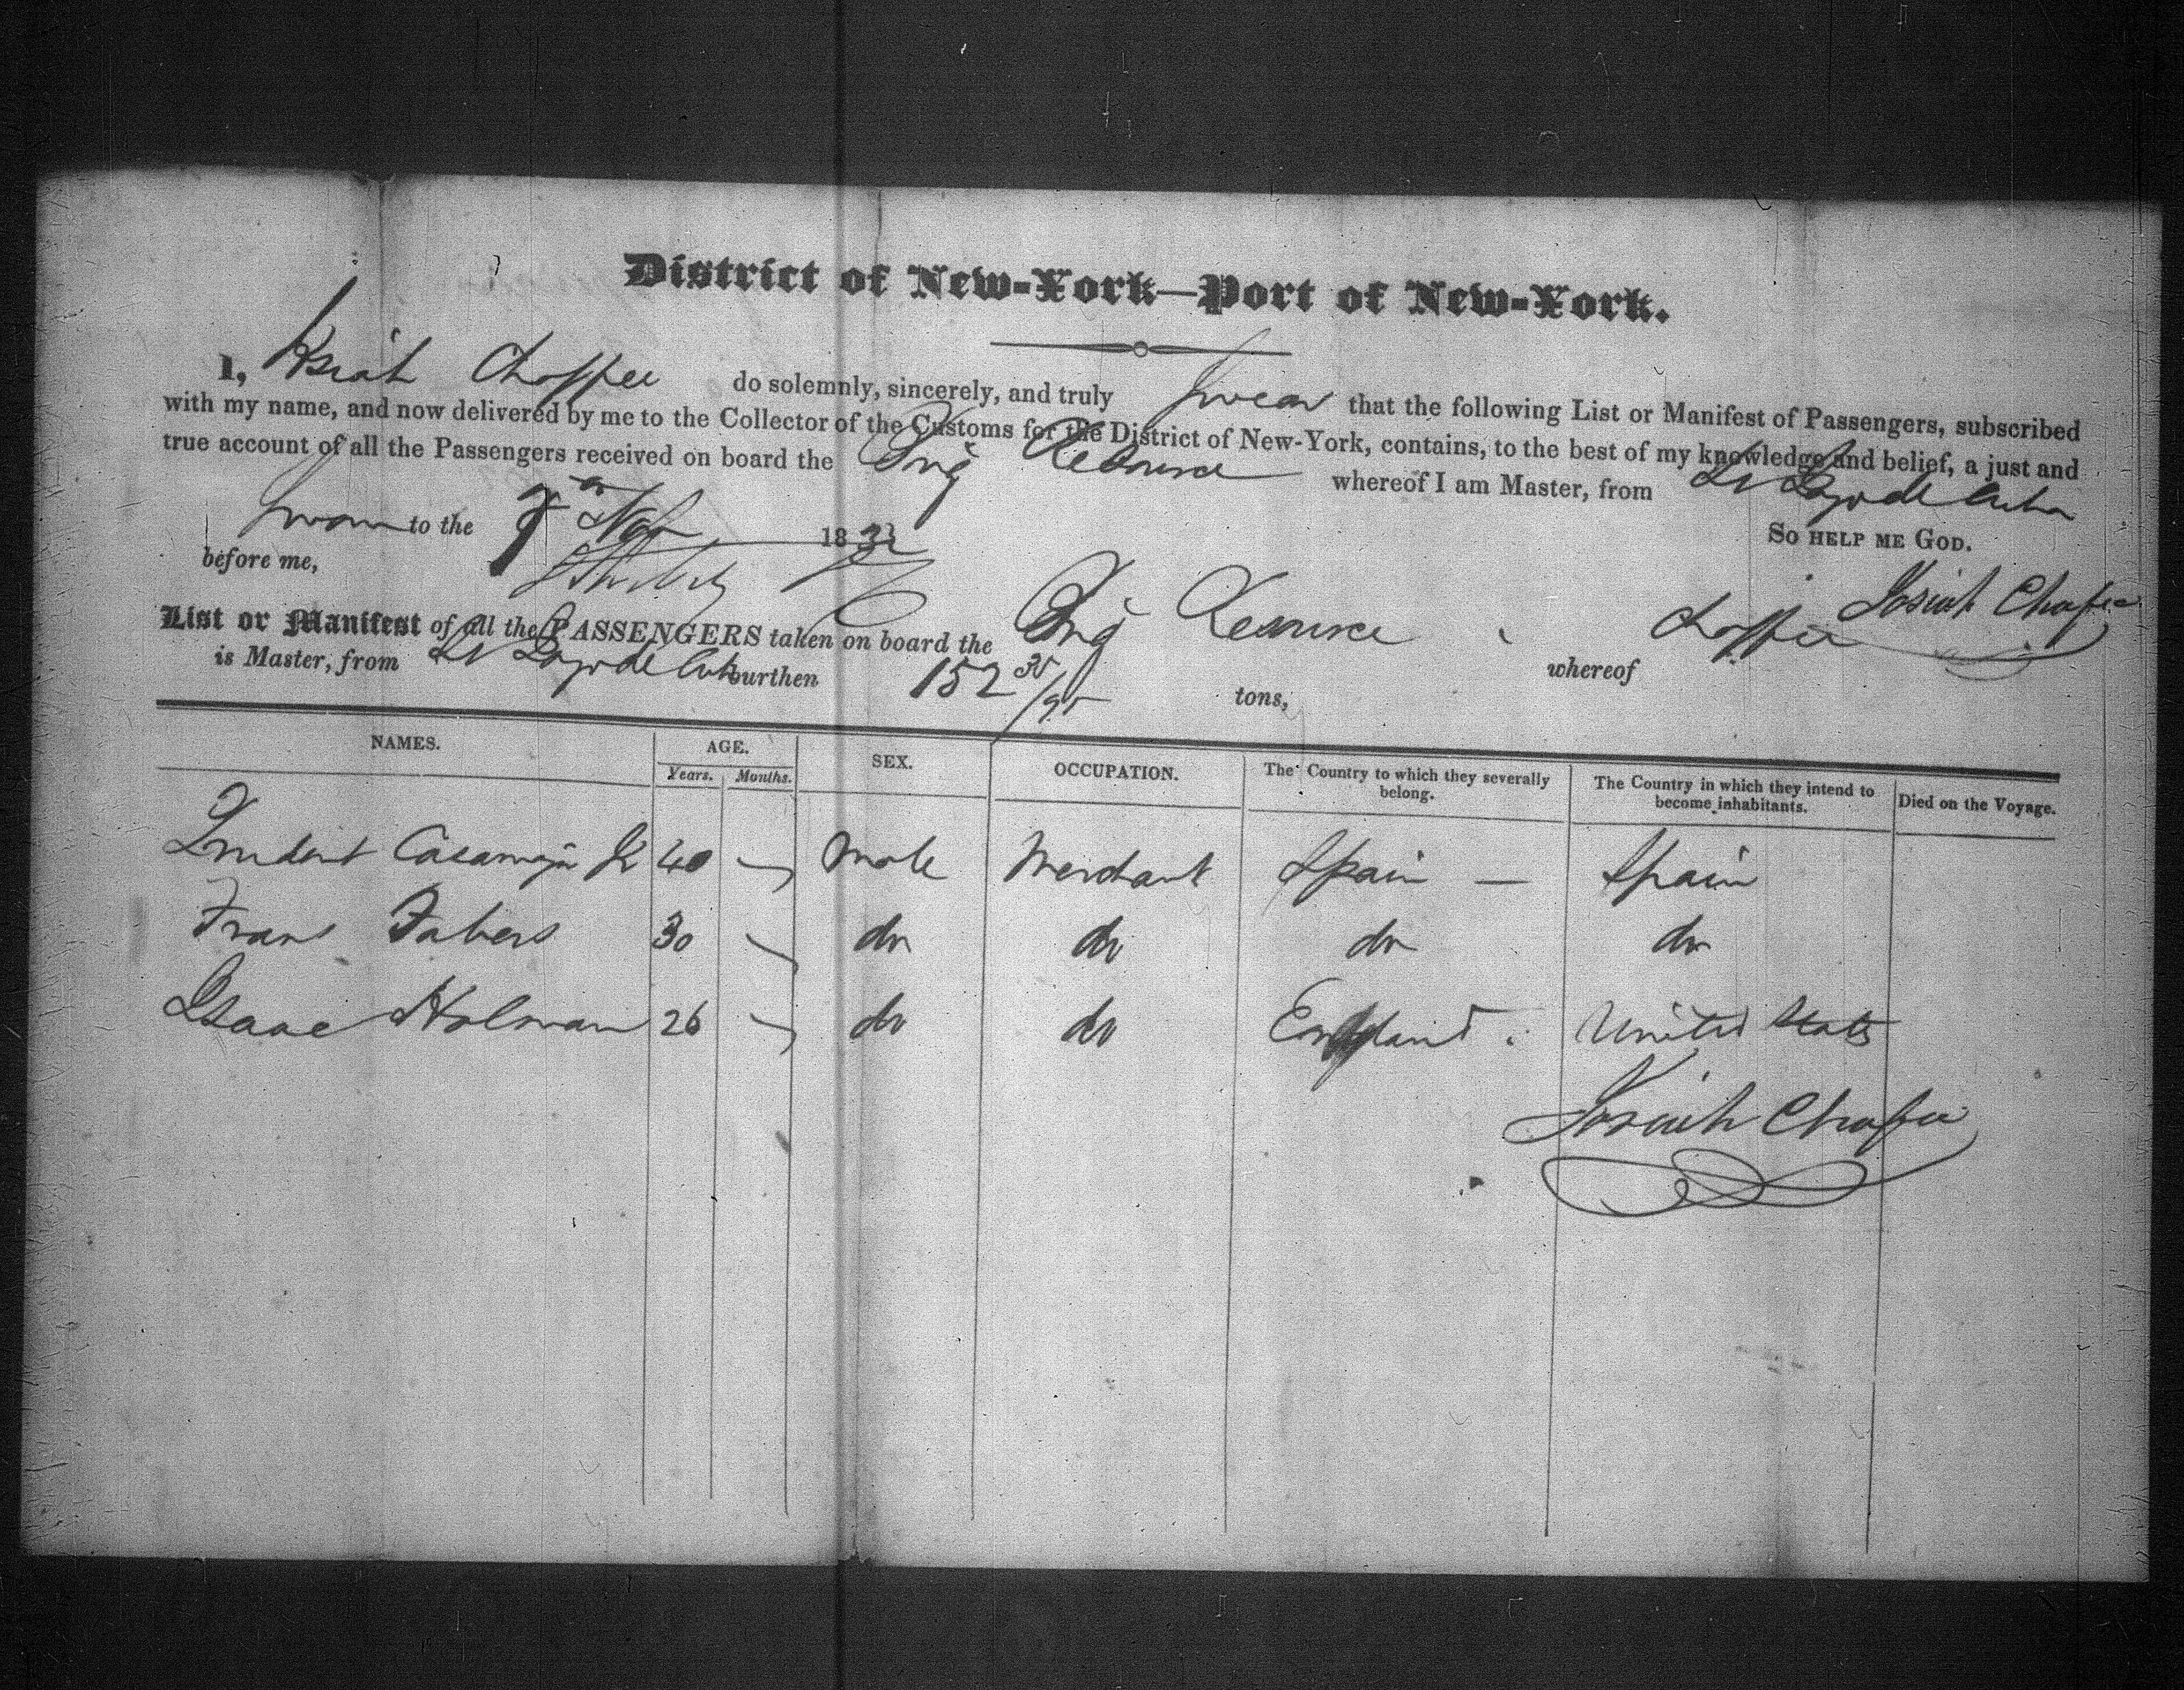 District of New-York—Port of New-York.
I, Josiah Chaffee do solemnly, sincerely, and truly Swear that the following List or Manifest of Passengers, subscribed
with my name, and now delivered by me to the Collector of the Customs for the District of New-York, contains, to the best of my knowledge and belief, a just and
true account of all the Passengers received on board the Brig Resource whereof I am Master, from St Jago de Cuba
Sworn to the Nov 1832 So help me God.
before me, Josiah Chafee
List or Manifest of all the PASSENGERS taken on board the Brig Resource whereof Chaffee
is Master, from St Jago de Cuba burthen 152 /95 tons,
NAMES. AGE. SEX. OCCUPATION. The Country to which they severally belong. The Country in which they intend to become inhabitants. Died on the Voyage.
Years. Months.
Prudent Casamajor 40 Male Merchant Spain — Spain
Frans 30 do do do do
Isaac Holman 26 do do England United States
Josiah Chafee